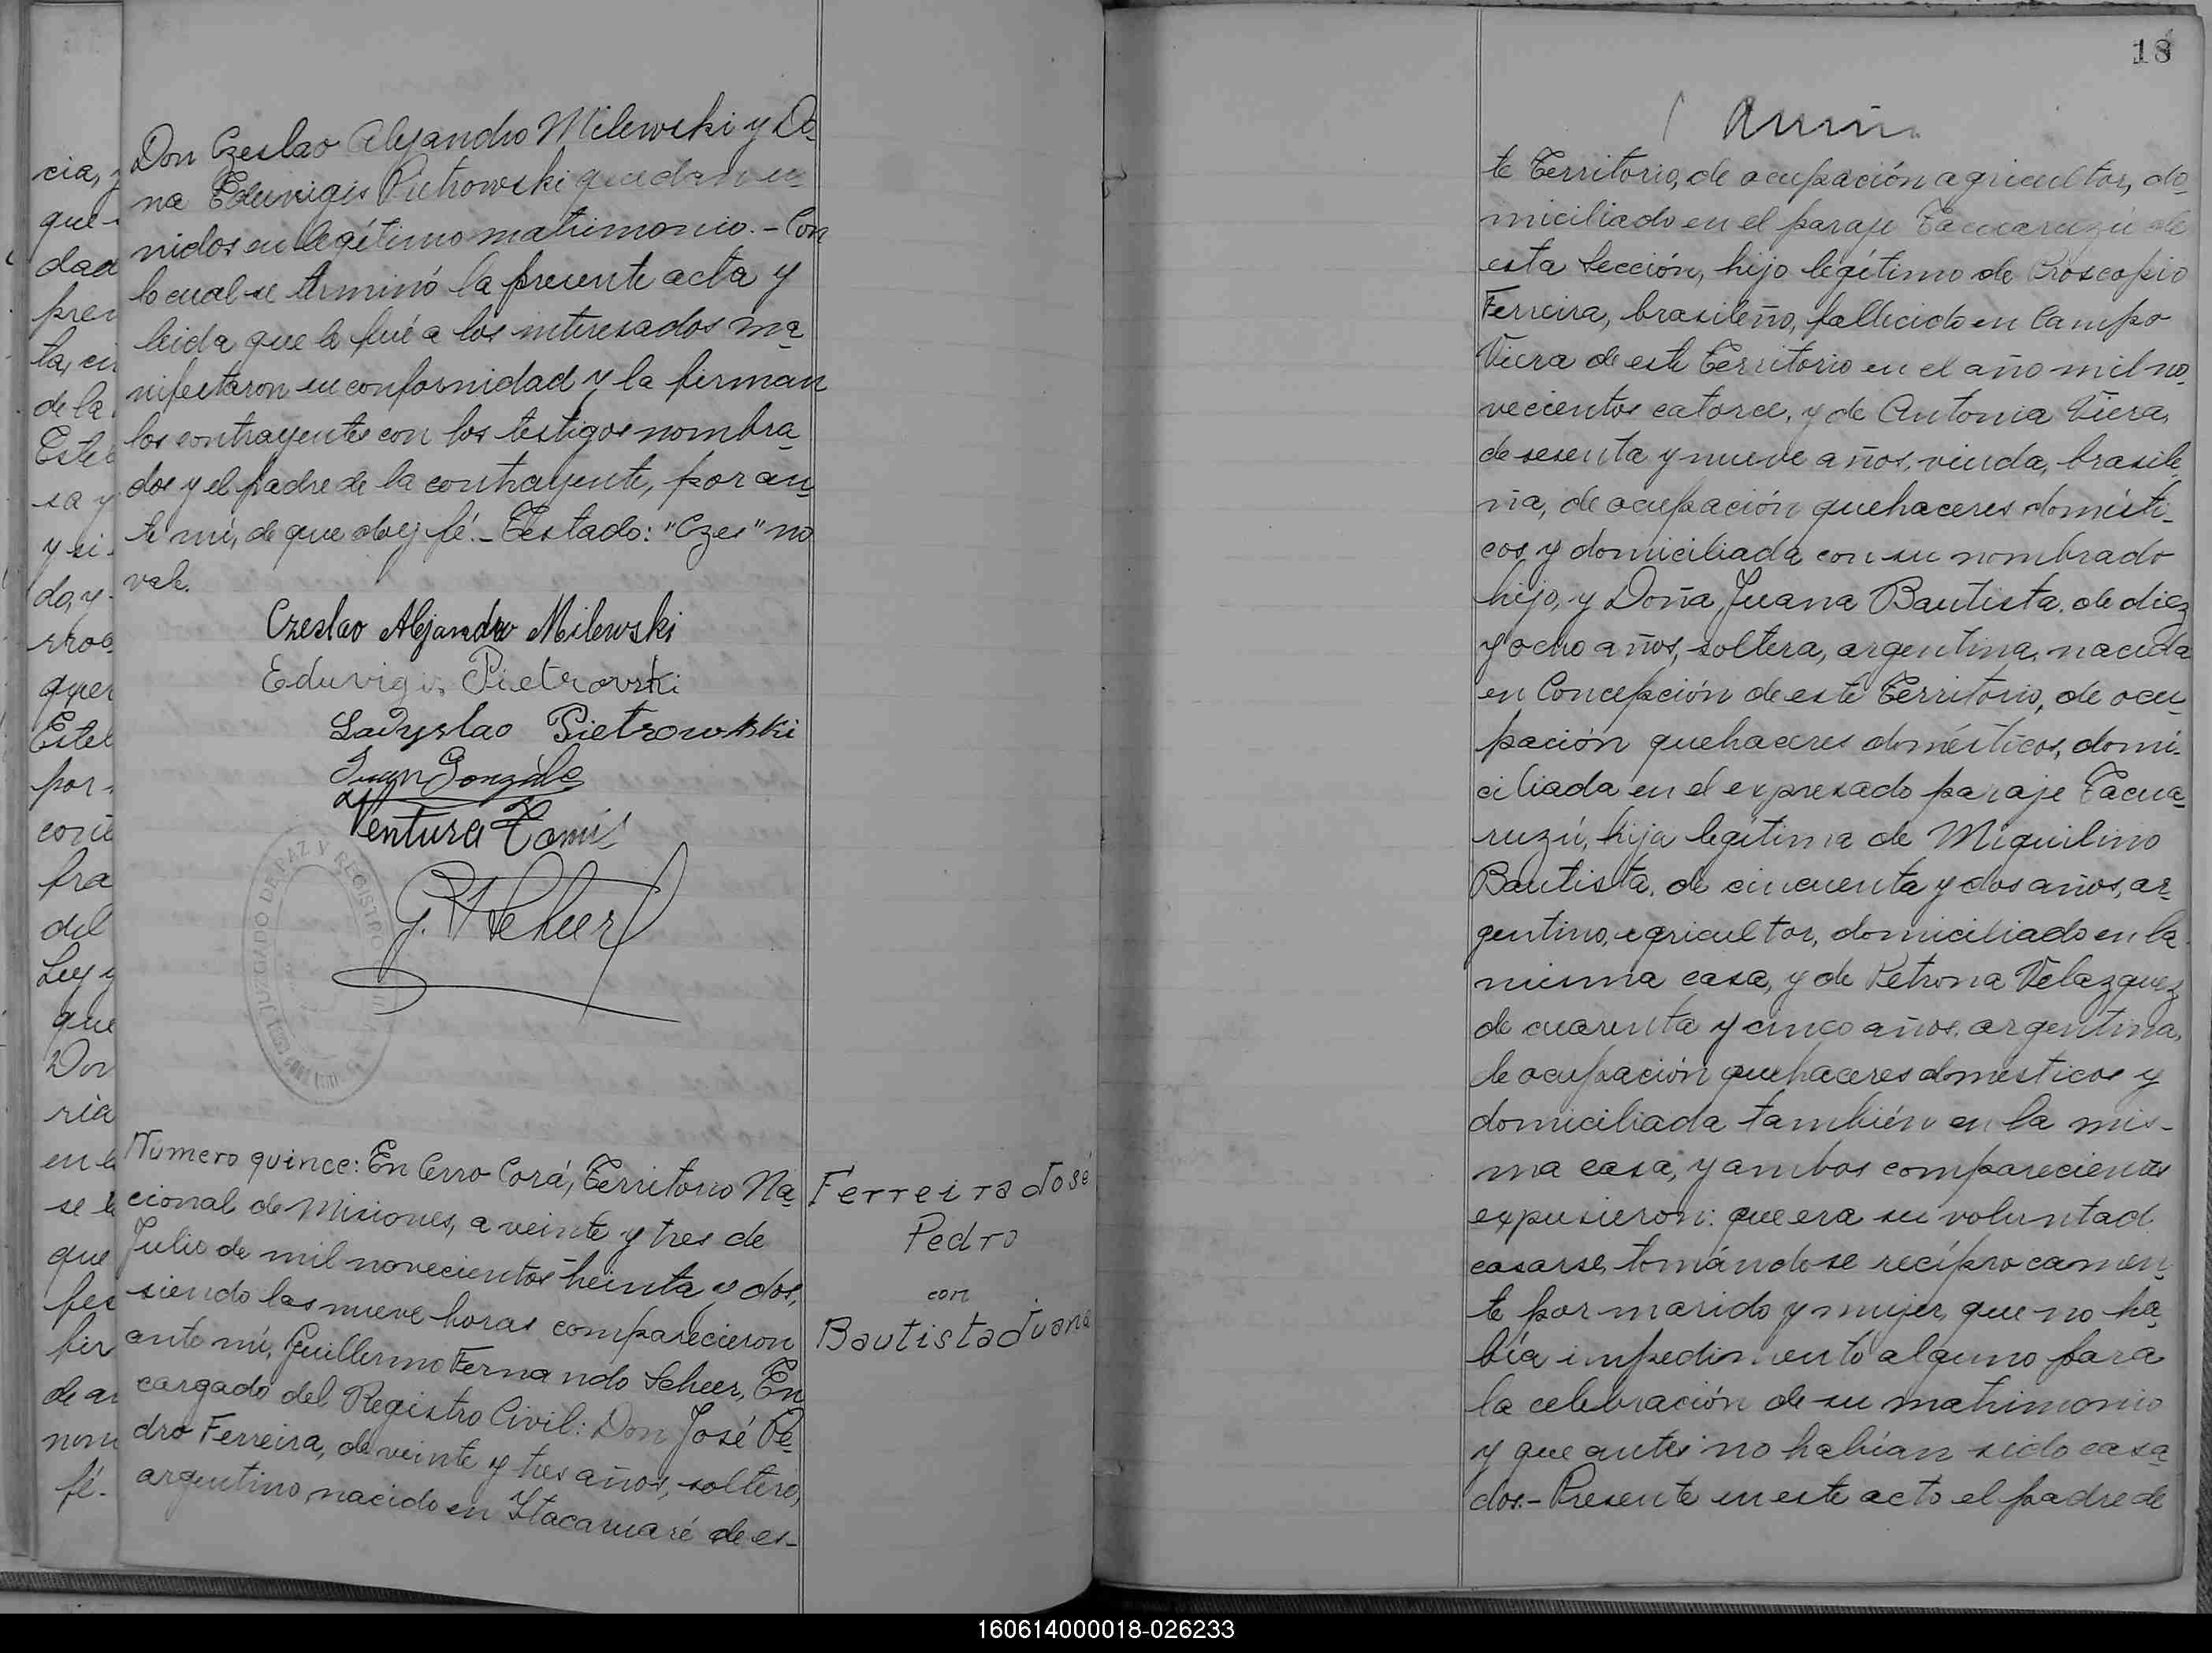 Don Czeslao Alejandro Milewski y Do-
na Eduvigis Pietrowski quedan u-
nidos en legítimo matrimonio.- Con
lo cual se terminó la presente acta y
leida que le fué a los interesados ma-
nifestaron su conformidad y la firman
los contrayentes con los testigos nombra-
dos y el padre de la contrayente, por an-
te mí, de que doy fé.- Testado: "Czes" no
vale.
Czeslao Alejandro Milewski
Eduvigis Pietrovski
Ladyslao Pietrowski
Juan Gonzále
Ventura
G. F. Scheer
JUZGADO DE PAZ Y REGISTRO
Número quince: En Cerro Corá, Territorio Na-
cional de Misiones, a veinte y tres de
Julio de mil novecientos treinta y dos,
siendo las nueve horas comparecieron
ante mí, Guillermo Fernando Scheer, En-
cargado del Registro Civil: Don José Pe-
dro Ferreira, de veinte y tres años, soltero,
argentino, nacido en Itacaruaré de es-
Ferreira José
Pedro
con
Bautista Juana
cia, y
que
dad
pres
ta, ci
de la
Esteb
sa y
y si
do, y
rroo
quer
Estel
por
cont
fra
del
Ley y
que
Don
ria
en la
se le
que
fes
fir
de an
nom
fé.
18
te Territorio, de ocupación agricultor, do-
miciliado en el paraje Tacuaruzú de
esta Sección, hijo legítimo de Proscopio
Ferreira, brasileño, fallecido en Campo
Viera de este Territorio en el año mil no-
vecientos catorce, y de Antonia Viera,
de sesenta y nueve años, viuda, brasile-
ña, de ocupación quehaceres domésti-
cos, y domiciliada con su nombrado
hijo, y Doña Juana Bautista, de diez
y ocho años, soltera, argentina, nacida
en Concepción de este Territorio, de ocu-
pación quehaceres domésticos, domi-
ciliada en el expresado paraje Tacua-
ruzú, hija legítima de Miquilino
Bautista, de cincuenta y dos años, ar-
gentino, agricultor, domiciliado en la
misma casa, y de Petrona Velazquez
de cuarenta y cinco años, argentina,
de ocupación quehaceres domesticos y
domiciliada también en la mis-
ma casa, y ambos comparecientes
expusieron: que era su voluntad
casarse, tomándose recíprocamen-
te por marido y mujer, que no ha-
bía impedimento alguno para
la celebración de su matrimonio
y que antes no habían sido casa-
dos.- Presente en este acto el padre de
160614000018-026233